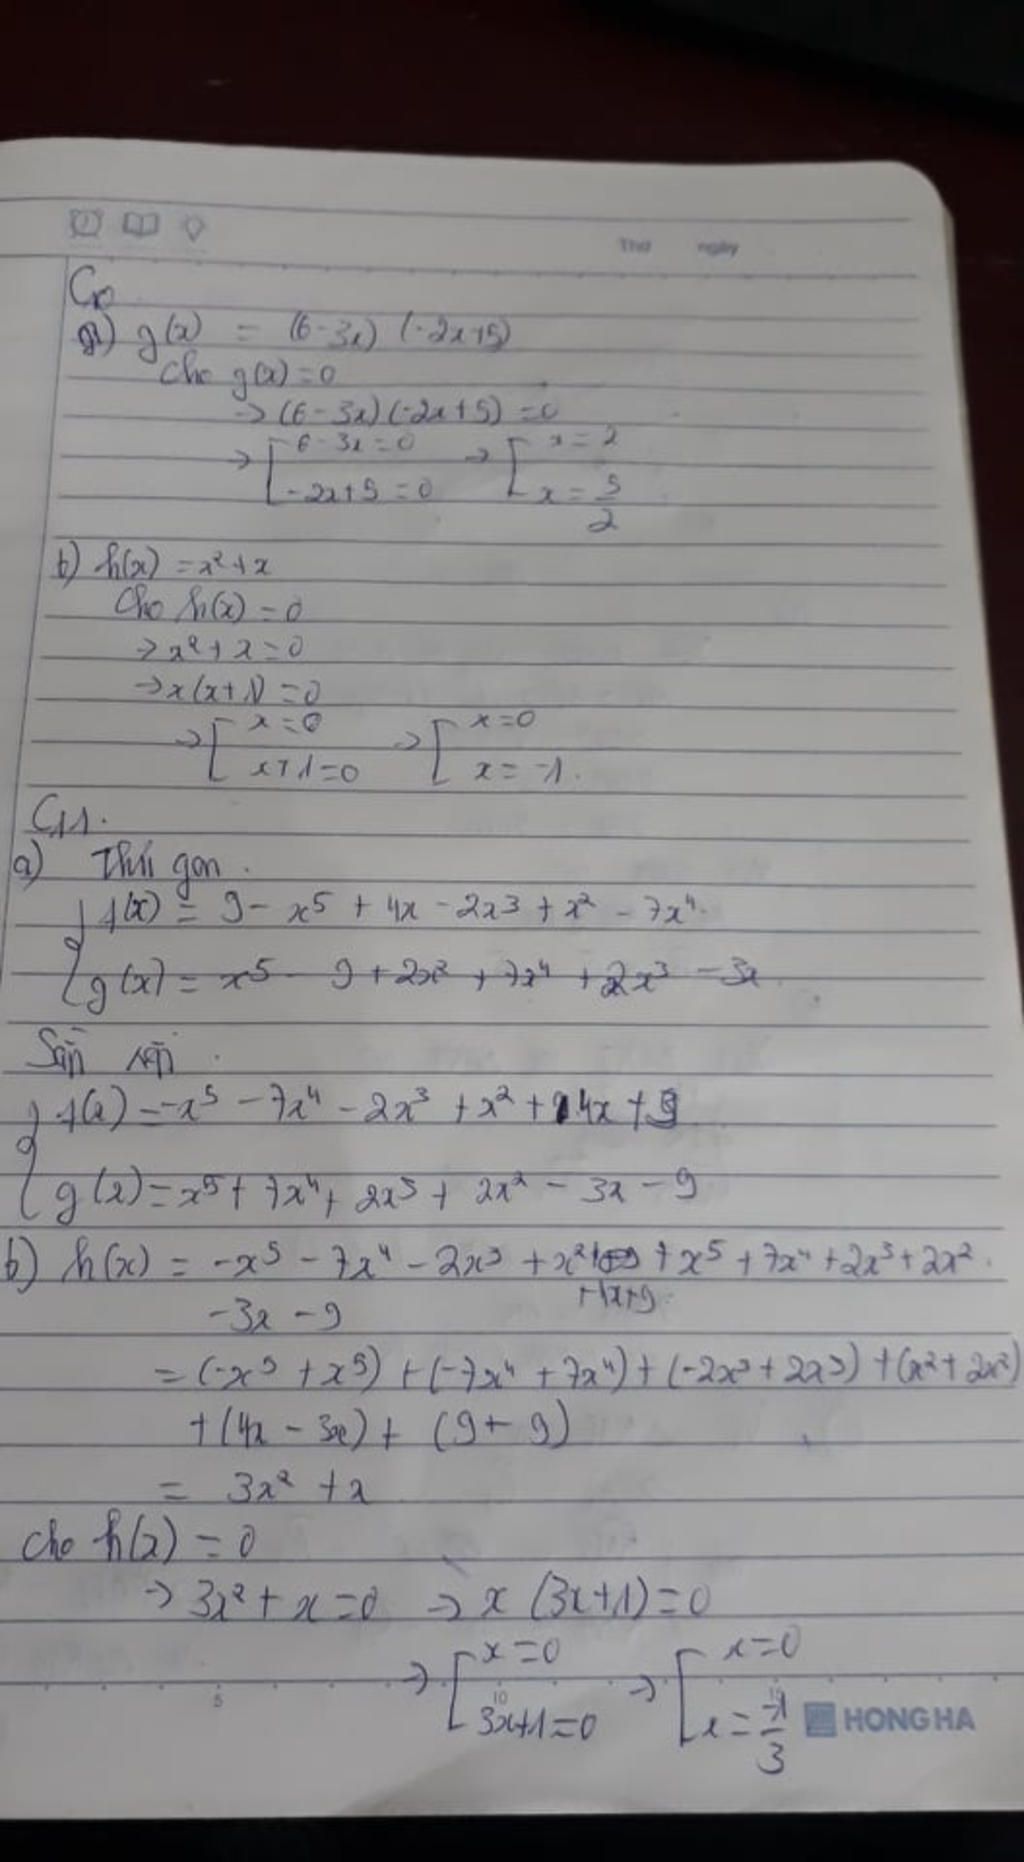 Thứ ngày
C10
a) g(x) = (6-3x) (-2x+5)
Cho g(x) = 0
→ (6-3x)(-2x+5) = 0
→ [ 6-3x=0 → [ x=2
-2x+5=0 x = 5/2
b) h(x) = x² + x
Cho h(x) = 0
→ x² + x = 0
→ x(x+1) = 0
→ [ x=0 → [ x=0
x+1=0 x = -1.
C11.
a) Thu gọn.
{ f(x) = 9 - x⁵ + 4x - 2x³ + x² - 7x⁴.
g(x) = x⁵ - 9 + 2x² + 7x⁴ + 2x³ - 3x.
Sắp xếp.
{ f(x) = -x⁵ - 7x⁴ - 2x³ + x² + 4x + 9
g(x) = x⁵ + 7x⁴ + 2x³ + 2x² - 3x - 9
b) h(x) = -x⁵ - 7x⁴ - 2x³ + x² + 4x + 9 + x⁵ + 7x⁴ + 2x³ + 2x².
-3x - 9
= (-x⁵ + x⁵) + (-7x⁴ + 7x⁴) + (-2x³ + 2x³) + (x² + 2x²)
+ (4x - 3x) + (9 + 9)
= 3x² + x
Cho h(x) = 0
→ 3x² + x = 0 → x (3x+1) = 0
→ [ x=0 → [ x=0
3x+1=0 x = -1/3
5 10 15
HONG HA